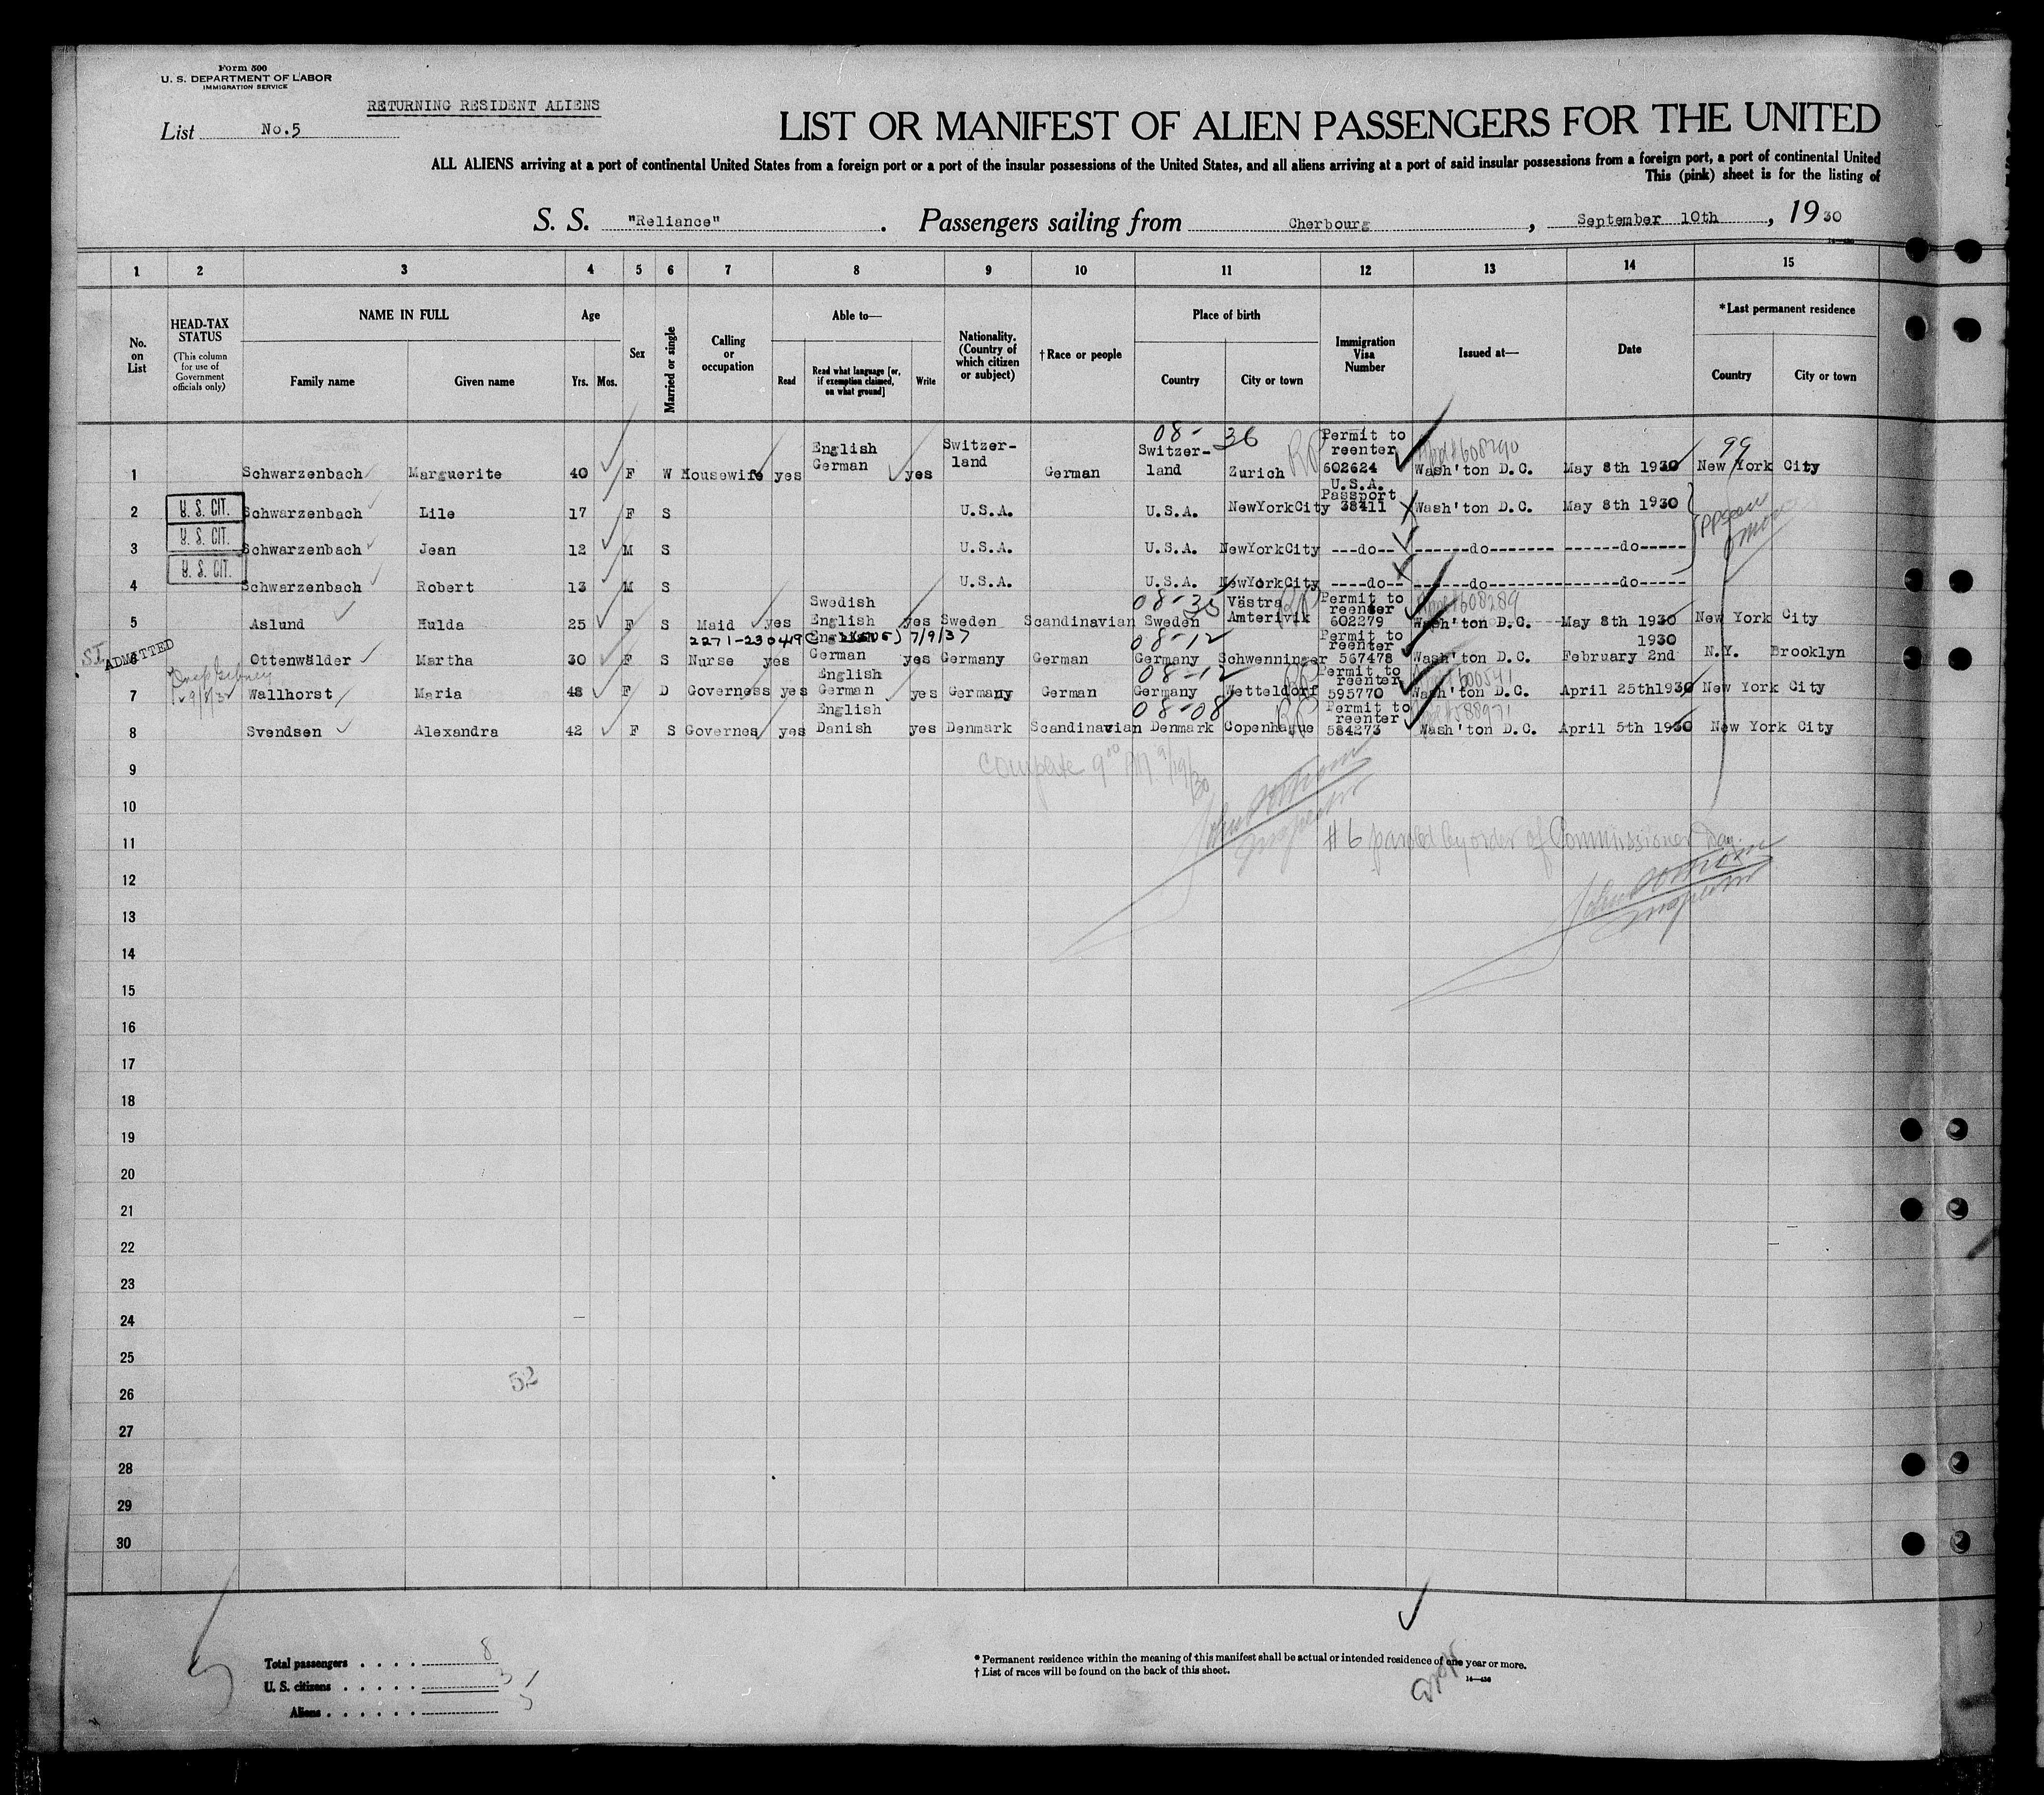 Form 500
U. S. DEPARTMENT OF LABOR
IMMIGRATION SERVICE
RETURNING RESIDENT ALIENS
List No.5
LIST OR MANIFEST OF ALIEN PASSENGERS FOR THE UNITED
ALL ALIENS arriving at a port of continental United States from a foreign port or a port of the insular possessions of the United States, and all aliens arriving at a port of said insular possessions from a foreign port, a port of continental United
This (pink) sheet is for the listing of
S. S. "Reliance" . Passengers sailing from Cherbourg , September 10th , 19 30
1 2 3 4 5 6 7 8 9 10 11 12 13 14 15
No. on List
HEAD-TAX STATUS
(This column for use of Government officials only)
NAME IN FULL
Family name Given name
Age
Yrs. Mos.
Sex
Married or single
Calling or occupation
Able to—
Read
Read what language [or, if exemption claimed, on what ground]
Write
Nationality. (Country of which citizen or subject)
† Race or people
Place of birth
Country City or town
Immigration Visa Number
Issued at—
Date
*Last permanent residence
Country City or town
08- 36 99
1 Schwarzenbach Marguerite 40 F W Housewife yes English German yes Switzer-land German Switzer-land Zurich RP Permit to reenter 602624 608290 Wash'ton D.C. May 8th 1930 New York City
2 U. S. CIT. Schwarzenbach Lile 17 F S U.S.A. U.S.A. NewYorkCity U.S.A. Passport 38411 Wash'ton D.C. May 8th 1930
3 U. S. CIT. Schwarzenbach Jean 12 M S U.S.A. U.S.A. NewYorkCity ---do-- ------do------- ------do-----
4 U. S. CIT. Schwarzenbach Robert 13 M S U.S.A. U.S.A. NewYorkCity ----do-- ------do------- ------do-----
5 Aslund Hulda 25 F S Maid yes Swedish English yes Sweden Scandinavian Sweden Västra Amterivik Permit to reenter 602279 608289 Wash'ton D.C. May 8th 1930 New York City
2271-23049 7/9/37 08-12
S.I. ADMITTED
6 Ottenwälder Martha 30 F S Nurse yes English German yes Germany German Germany Schwenninger Permit to reenter 567478 Wash'ton D.C. February 2nd 1930 N.Y. Brooklyn
08-12
7 Wallhorst Maria 48 F D Governess yes English German yes Germany German Germany Wetteldorf RP Permit to reenter 595770 600541 Wash'ton D.C. April 25th1930 New York City
08-08
8 Svendsen Alexandra 42 F S Governes yes English Danish yes Denmark Scandinavian Denmark Copenhague RP Permit to reenter 584273 588971 Wash'ton D.C. April 5th 1930 New York City
9
10
11
#6 paroled by order of Commissioner Day
12
Inspector
13
14
15
16
17
18
19
20
21
22
23
24
25
52
26
27
28
29
30
Total passengers . . . . 8
U. S. citizens . . . . . 3
Aliens . . . . . . 5
* Permanent residence within the meaning of this manifest shall be actual or intended residence of one year or more.
† List of races will be found on the back of this sheet.